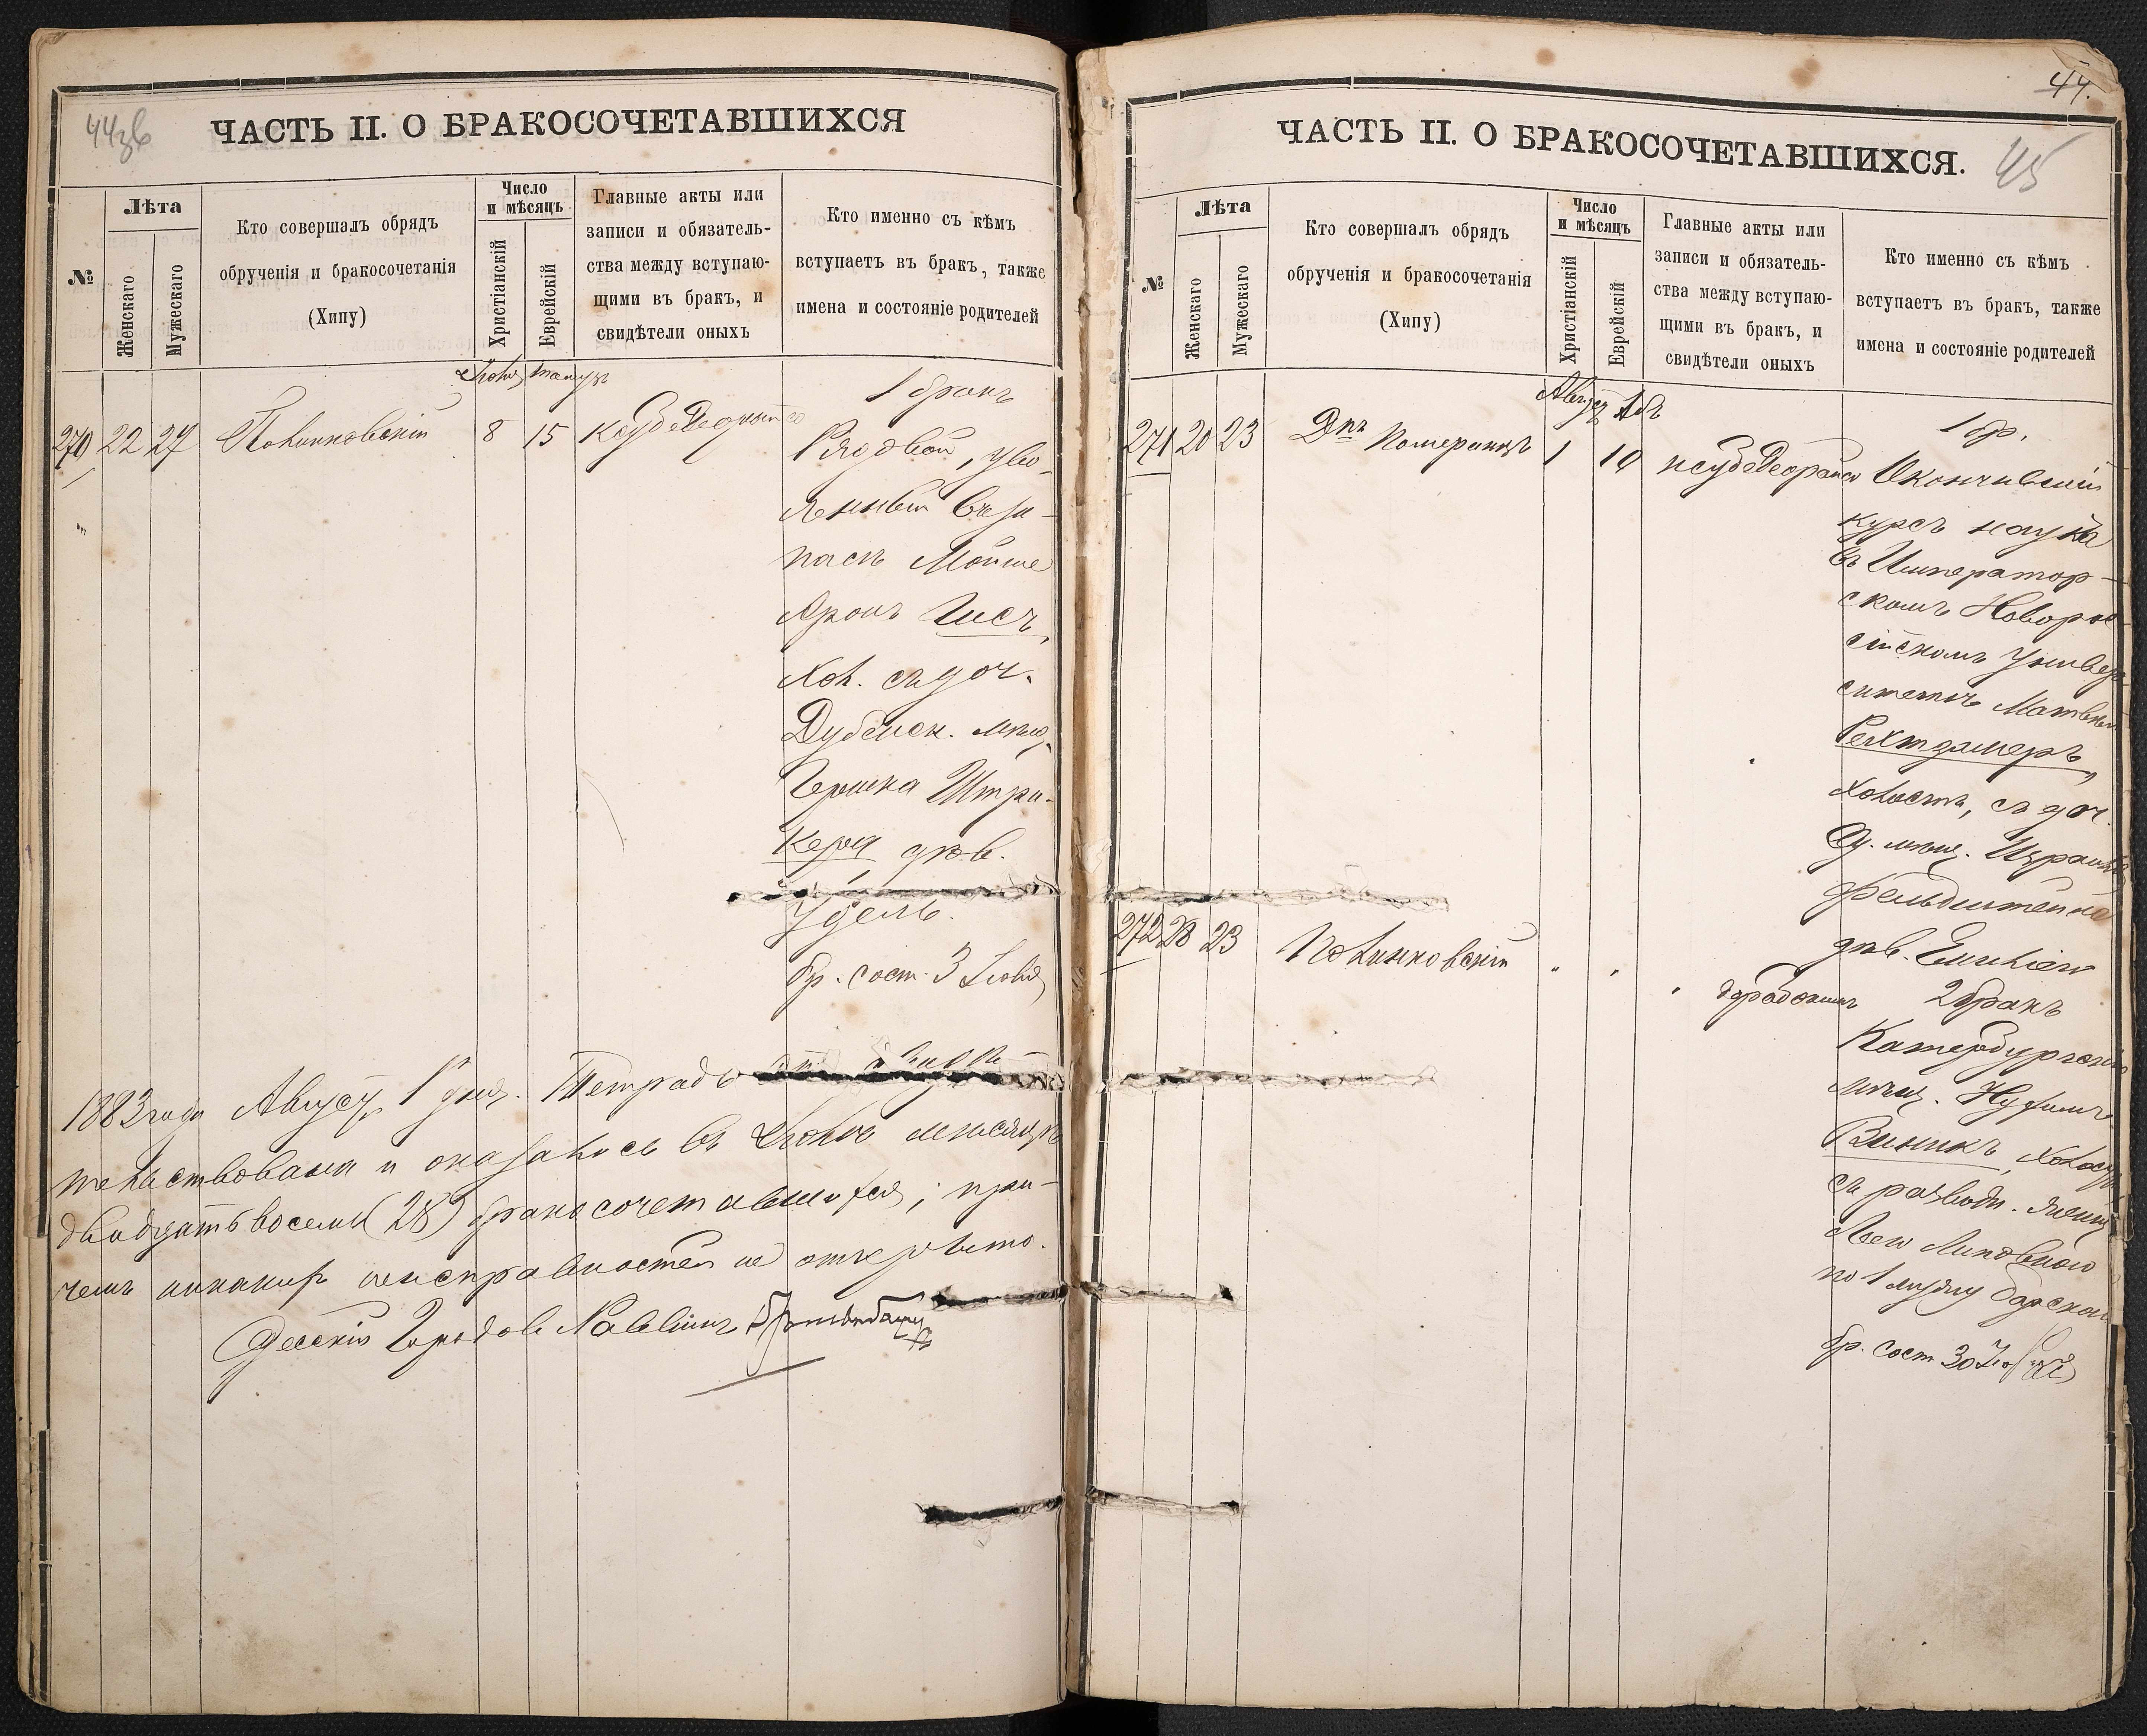 44зв
ЧАСТЬ II. О БРАКОСОЧЕТАВШИХСЯ
№
Лѣта
Женскаго
Мужескаго
Кто совершалъ обрядъ
обрученія и бракосочетанія
(Хипу)
Число
и мѣсяцъ
Христіанскій
Еврейскій
Главные акты или
записи и обязатель-
ства между вступаю-
щими въ бракъ, и
свидѣтели оныхъ
Кто именно съ кѣмъ
вступаетъ въ бракъ, также
имена и состояніе родителей
270 22 27 Полинковскій 8 15
1 бракъ
Рядовой, уво-
ленный въ за-
пасъ Мойше
Аронъ Гисъ,
хол. съ доч.
Дубенск. мѣщ.
Гершка Штри-
кера дѣв.
Удель.
бр. сост. 3 Іюля
1883 года Августа 1 дня. Тетрадь
и оказалось въ Іюлѣ мѣсяцѣ
двадцать восемь (28) бракосочетавшихся; при-
чемъ никакихъ неисправностей не открыто.
Одесскій Городовой Раввинъ
44.
ЧАСТЬ II. О БРАКОСОЧЕТАВШИХСЯ.
45
№
Лѣта
Женскаго
Мужескаго
Кто совершалъ обрядъ
обрученія и бракосочетанія
(Хипу)
Число
и мѣсяцъ
Христіанскій
Еврейскій
Главные акты или
записи и обязатель-
ства между вступаю-
щими въ бракъ, и
свидѣтели оныхъ
Кто именно съ кѣмъ
вступаетъ въ бракъ, также
имена и состояніе родителей
Августъ Абъ
271 20 23 Померанцъ 1 10
1 бр.
Окончившій
курсъ наукъ
въ Император-
скомъ Новорос-
сійскомъ Универ-
ситетѣ Матвѣй
Рехтзамеръ,
холостъ, съ доч.
Од. мѣщ. Израиля
Фельдштейна
дѣв. Емиліею
272 28 23 Полинковскій " " "
2 бракъ
Катербургскій
мѣщ. Нухимъ
Виникъ, холостъ
съ разводн. женщ.
Леею Липовною
по 1 мужу
бр. сост. 30 Іюля